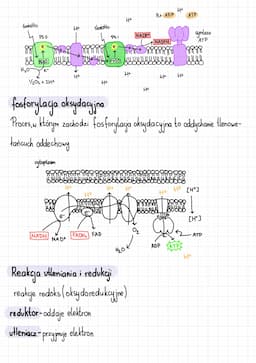 H⁺ H⁺ H⁺ P+ ADP ATP
światło H⁺ światło NADP⁺ H⁺
PS II PS I NADPH syntaza ATP
H₂O
½O₂ + 2H⁺ H⁺ H⁺ H⁺ H⁺
H⁺
fosforylacja oksydacyjna
Proces, w którym zachodzi fosforylacja oksydacyjna to oddychanie tlenowe-
łańcuch oddechowy
cytoplazma
H⁺ H⁺ H⁺ H⁺ H⁺ [H⁺]
e⁻ e⁻ [H⁺]
NADH NAD⁺ FADH₂ FAD O₂
H₂O ADP ATP ATP
H⁺
Reakcja utleniania i redukcji
reakcje redoks (oksydoredukcyjne)
reduktor-oddaje elektron
utleniacz-przyjmuje elektron